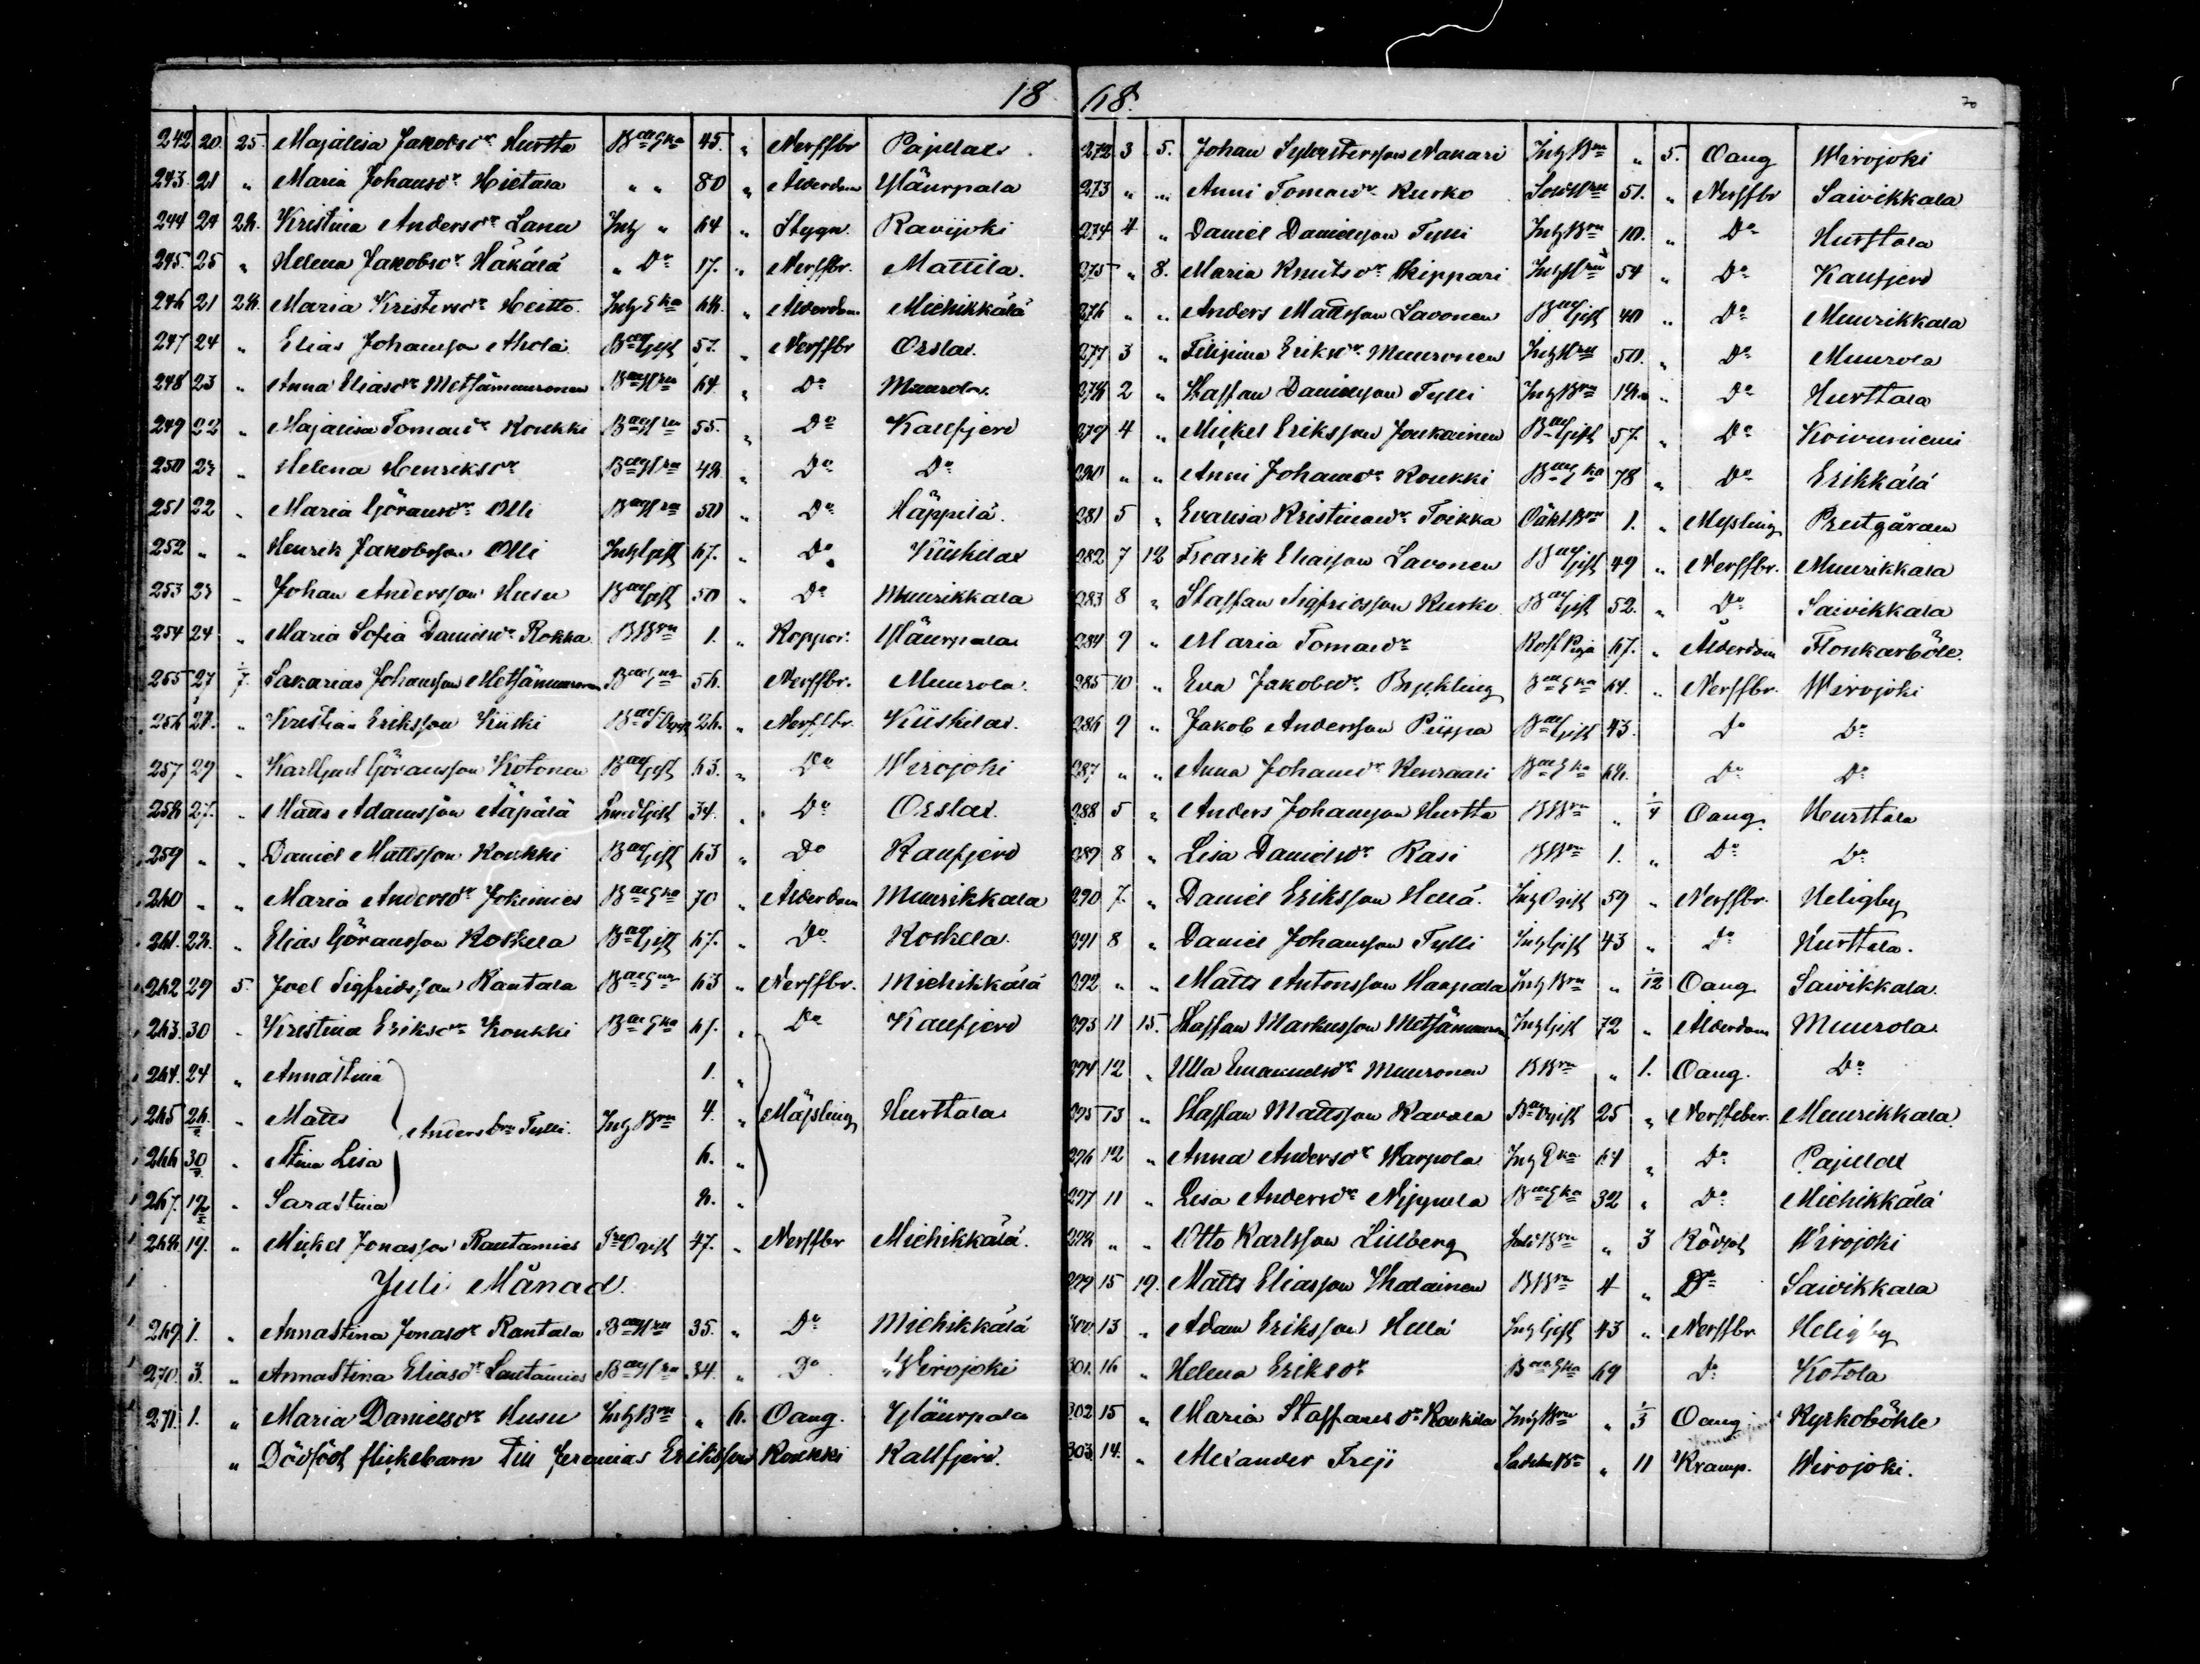 18
242 20. 25. Majalisa Jakobsdr Hurtta Bae Eka 45. " Nerffbr Pajulax
243. 21 " Maria Johansdr Hietala " " 80 " Ålderdom Yläurpala
244 24 28. Kristina Andersdr Lanu Inh " 64 " Stygn. Ravijoki
245. 25 " Helena Jakobsdr Häkälä " Do 17. " Nerffbr. Mattila.
246 21 28. Maria Kristersdr Heitto. Inh Eka 68. " Ålderdom Miehikkälä
247 24 " Elias Johansson Ahola. Bae Gift 57. " Nerffbr Orslax.
248 23 " Anna Eliasdr Metsämuuronen Bae Hru 64. " Do Muurola.
249 22 " Majalisa Tomasdr Koukki Bae Hru 55. " Do Kalfjerd
250 23 " Helena Henriksdr Bae Hru 48. " Do Do
251 22 " Maria Göransdr Olli Bae Hru 50 " Do Häppilä.
252 " " Henrik Jakobsson Olli Inh Gift 67. " Do Kiiskilax
253 23 " Johan Andersson Husu Bae Gift 50 " Do Muurikkala
254 24 " Maria Sofia Danielsdr Rokka BBrn 1. " Koppor. Yläurpala
255 27 1/7. Sakarias Johansson Metsämuuronen Bae Enk 56. " Nerffbr. Muurola.
256 28. " Kristian Eriksson Kiiski Bae 28. " Nerffbr. Kiiskilax.
257 29 " Karl Gust Göransson Kotonen Bae Gift 63. " Do Wirojoki
258 27. " Matts Adamsson Ääpälä Gift 34. " Do Orslax.
259 " " Daniel Mattsson Koukki Bae Gift 63 " Do Kalfjerd
260 " " Maria Andersdr Jokimies Bae Eka 70 " Ålderdom Muurikkala
261. 28. " Elias Göransson Koskela Bae Gift 67. " Do Koskela.
262 29 5. Joel Sigfridsson Rantala Bae Enk 63 " Nerffbr. Miehikkälä
263. 30 " Kristina Eriksdr Koukki Bae Eka 67. " Do Kalfjerd
264. 24 " Annastina 1. "
265 26 " Matts Anders brn Tylli. Inh Brn 4. " Mäsling Hurttala
266 30 " Stina Lisa 6. "
267. " Sarastina 8. "
268 19. " Mickel Jonasson Rautamies 47. " Nerffbr Miehikkälä.
Juli Månad.
269. 1. " Annastina Jonasdr Rantala Bae Hru 35. " Do Miehikkälä
270. 3. " Annastina Eliasdr Lautamies Bae Hru 34. " Do Wirojoki
271. 1. " Maria Danielsdr Husu Inh Brn " 6. Oäng. Yläurpala
" Dödfödt flickebarn till Jeremias Eriksson Koukki Kallfjerd.
68.
70
272. 3 5. Johan Sylvestersson Nakari Inh Brn " 5. Oäng Wirojoki
273 " " Anni Tomasdr Kurko Hru 51. " Nerffbr Saivikkala
274 4 " Daniel Danielsson Tylli Inh Brn 10. " Do Hurttala
275 " 8. Maria Knutsdr Skippari Inh Hru 54 " Do Kalfjerd
276 " " Anders Mattsson Lavonen Bae Gift 40 " Do Muurikkala
277 3 " Filipina Eriksdr Muuronen Inh Hru 50. " Do Muurola
278 2 " Staffan Danielsson Tylli Inh Brn 18. " Do Hurttala
279 4 " Mickel Eriksson Joukainen Bae Gift 57. " Do Koivuniemi
280 " " Anni Johansdr Koukki Bae Eka 78 " Do Erikkälä
281 5 " Evalisa Kristinasdr Toikka Oäkt Brn 1. " Messling Prestgården
282 7 12 Fredrik Eliasson Lavonen Bae Gift 49 " Nerffbr. Muurikkala
283 8 " Staffan Sigfridsson Kurko Bae Gift 52. " Do Saivikkala
284 9 " Maria Tomasdr 67. " Ålderdom Flonkarböle.
285 10 " Eva Jakobsdr Byckling Bae Eka 64. " Nerffbr. Wirojoki
286 9 " Jakob Andersson Piispa Bae Gift 43. Do Do
287 " " Anna Johansdr Kenraali Bae Eka 68. Do Do
288 5 " Anders Johansson Hurtta BBrn " 1/4 Oäng. Hurttala
289 8 " Lisa Danielsdr Rasi BBrn 1. " Do Do
290 7. " Daniel Eriksson Hellä. Inh Ogift 59 " Nerffbr. Heligby
291 8 " Daniel Johansson Tylli Inh Gift 43 " Do Hurttala.
292 " " Matts Antonsson Haapala Inh Brn " 1/12 Oäng Saivikkala.
293 11 15. Staffan Markusson Metsämuuron Inh Gift 72 " Ålderdom Muurola
294 12 " Ulla Emanuelsdr Muuronen BBrn " 1. Oäng. Do
295 13 " Staffan Mattsson Kavala Bae Ogift 25 " Nerffeber. Muurikkala
296 12 " Anna Andersdr Warpola Inh Eka 64 " Do Pajulax
297 11 " Lisa Andersdr Nippula Bae Eka 32 " Do Miehikkälä
298 " " Otto Karlsson Lilberg Brn " 3 Rödsot Wirojoki
299 15 19. Matts Eliasson Ihalainen BBrn 4 " Do Saivikkala
300 13 " Adam Eriksson Hellä Inh Gift 43 " Nerffbr Heligby
301. 16 " Helena Eriksdr Bae Eka 69 Do Kotola
302 15 " Maria Staffansdr Koukila Inh Brn " 1/3 Oäng Kyrkoböhle
303 14. " Alexander Freji Brn " 11 Kramp. Wirojoki.